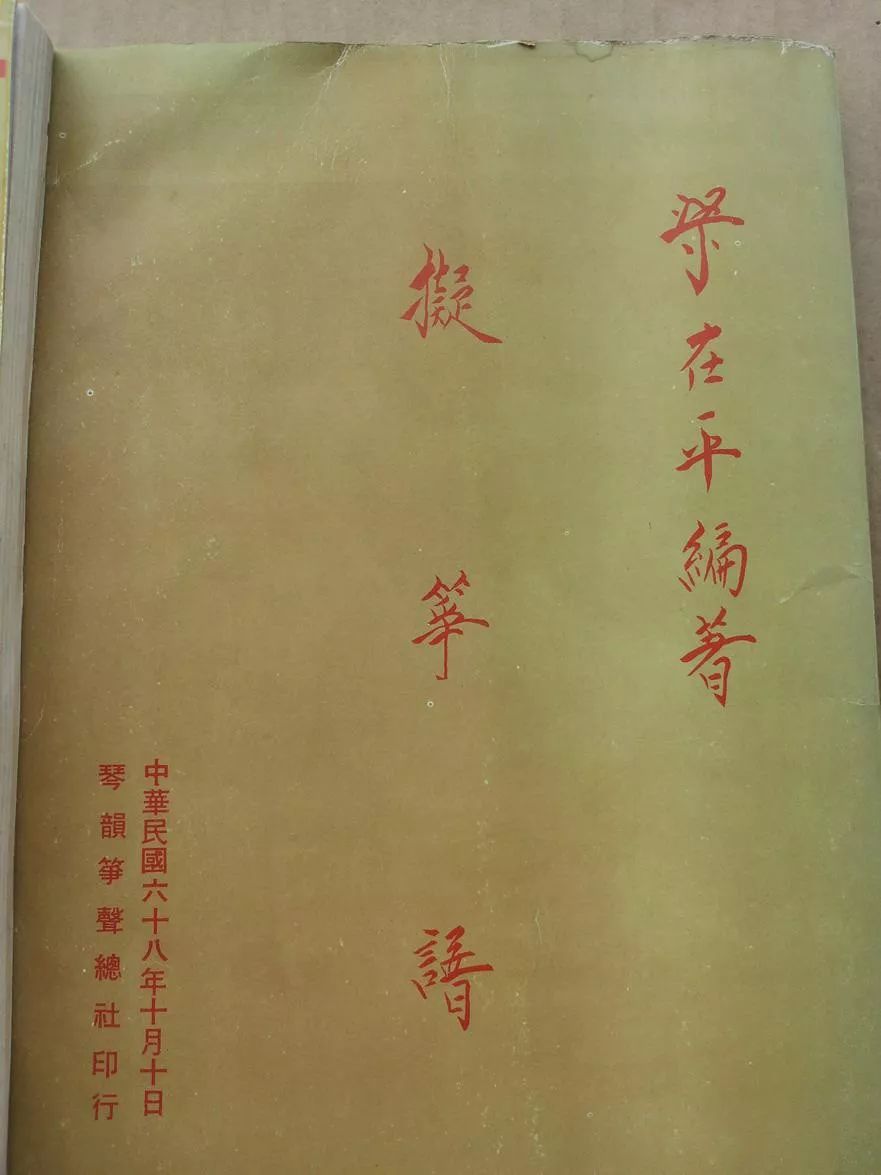 梁在平編著
擬箏譜
中華民國六十八年十月十日
琴韻箏聲總社印行